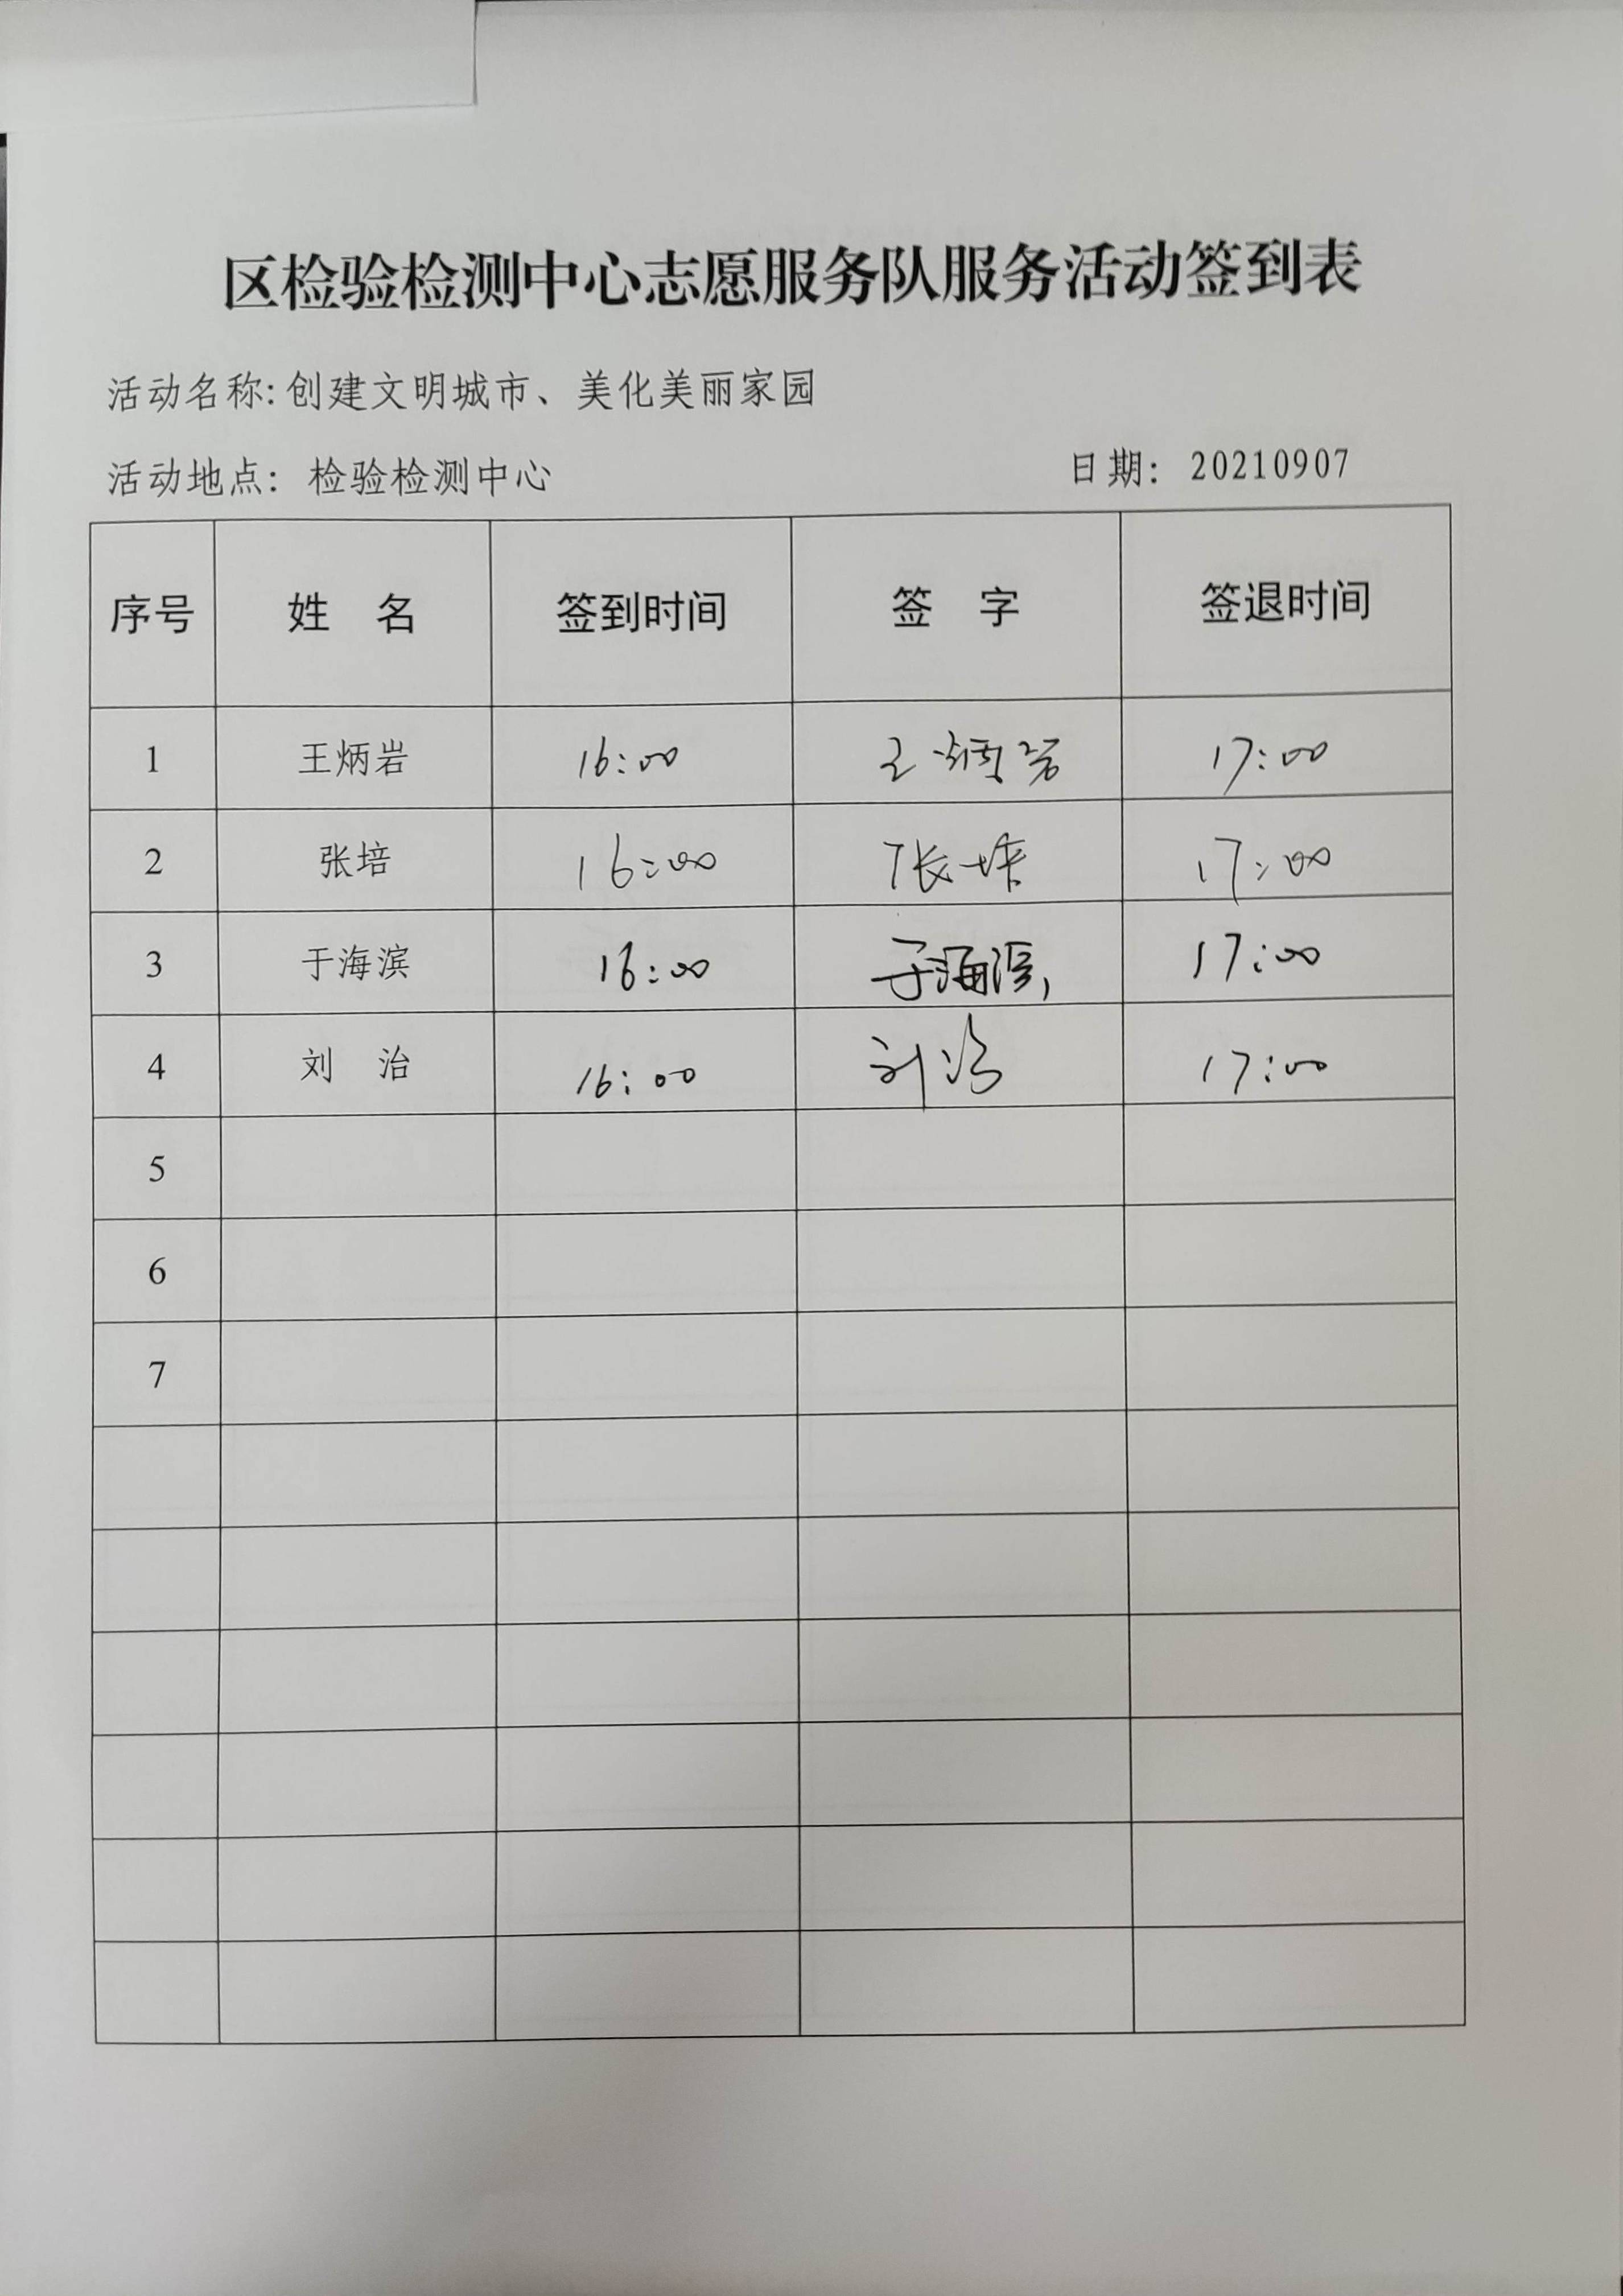 区检验检测中心志愿服务队服务活动签到表
活动名称:创建文明城市、美化美丽家园
活动地点: 检验检测中心 日期: 20210907
序号 姓 名 签到时间 签 字 签退时间
1 王炳岩 16:00 王炳岩 17:00
2 张培 16:00 张培 17:00
3 于海滨 16:00 于海滨 17:00
4 刘 治 16:00 刘治 17:00
5
6
7